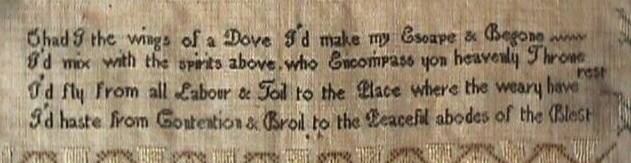 Ohad I the wings of a Dove I'd make my Escape & Begone
I'd mix with the spirits above, who Encompass yon heavenly Throne
I'd fly from all Labour & Toil to the Place where the weary have rest
I'd haste from Contention & Broil to the Peaceful abodes of the Blest